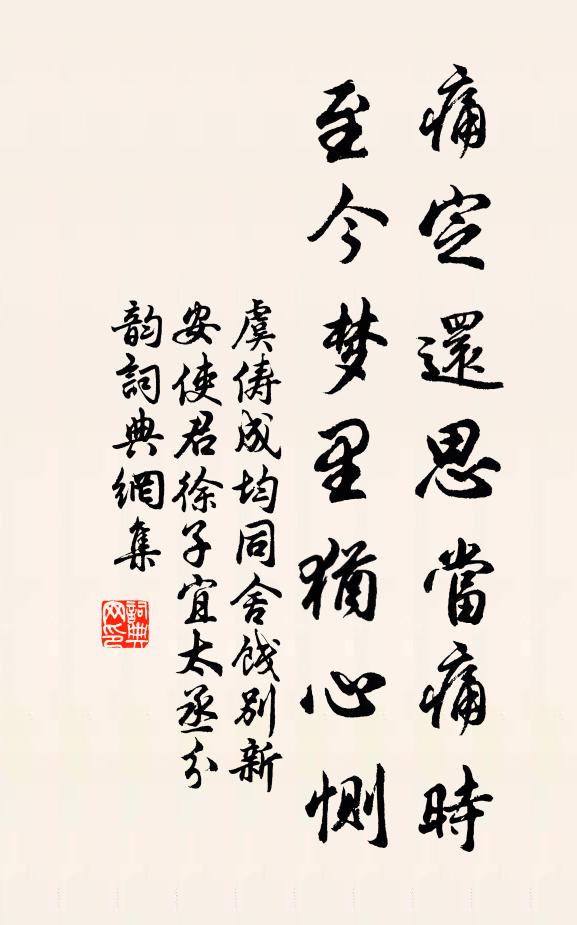 痛定還思當痛時
至今梦里猶心惻
虞俦成均同舍餞別新
安使君徐子宜太丞分
韵詞典網集
詞典
网印